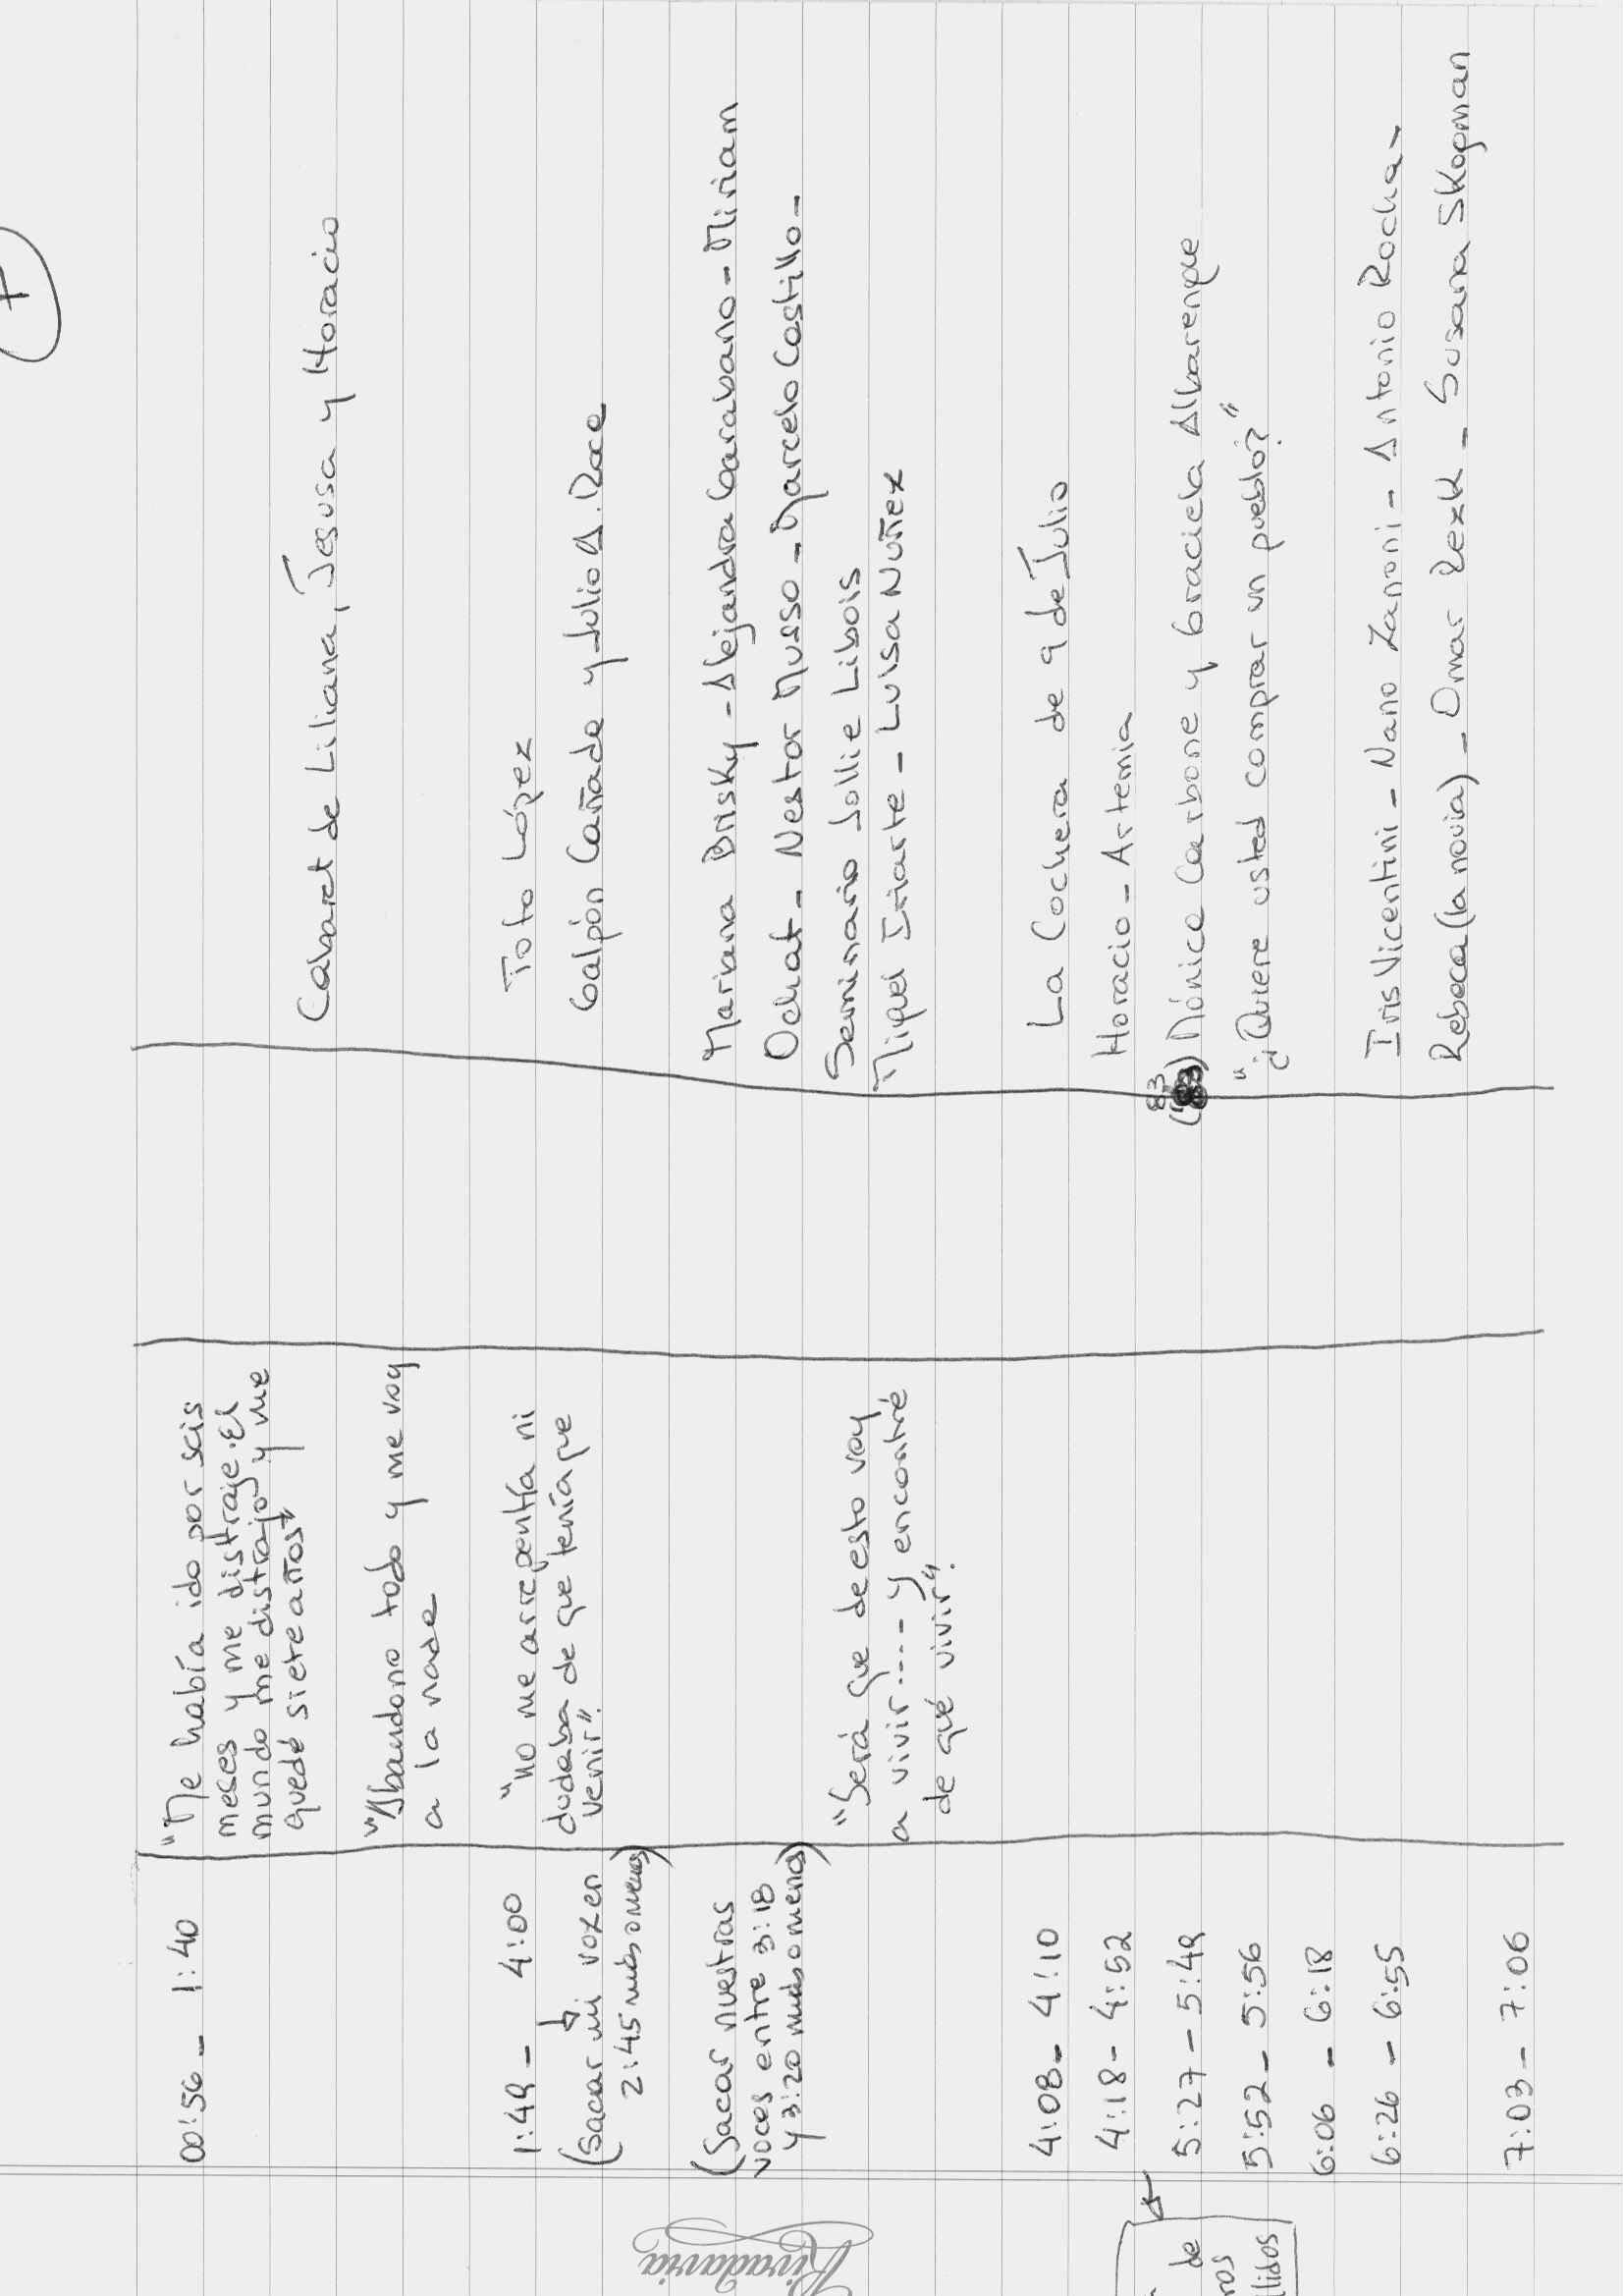 00:56 - 1:40
"Me había ido por seis
meses y me distraje. El
mundo me distrajo y me
quedé siete años"
"Abandono todo y me voy
a la nada
Cabaret de Liliana, Jesusa y Horacio
1:49 - 4:00
(Sacar mi voz en
2:45 más o menos)
"no me arrepentía ni
dudaba de que tenía que
venir".
Toto López
Galpón Cañada y Julio A. Roca
(Sacar nuestras
voces entre 3:18
y 3:20 más o menos)
"Será que de esto voy
a vivir.... y encontré
de qué vivir".
Mariana Brisky - Alejandra Garabano - Miriam
Ochat - Nestor Musso - Marcelo Castillo -
Seminario Jollie Libois
Miguel Iriarte - Luisa Nuñez
4:08 - 4:10
La Cochera de 9 de Julio
4:18 - 4:52
Horacio - Artemia
5:27 - 5:49
83
Mónica Carbone y Graciela Albarenque
5:52 - 5:56
"¿Quiere usted comprar un pueblo?"
6:06 - 6:18
6:26 - 6:55
Iris Vicentini - Nano Zanoni - Antonio Rocha -
Rebeca (la novia) - Omar Rezk - Susana Skopman
7:03 - 7:06
de
Rivadavia